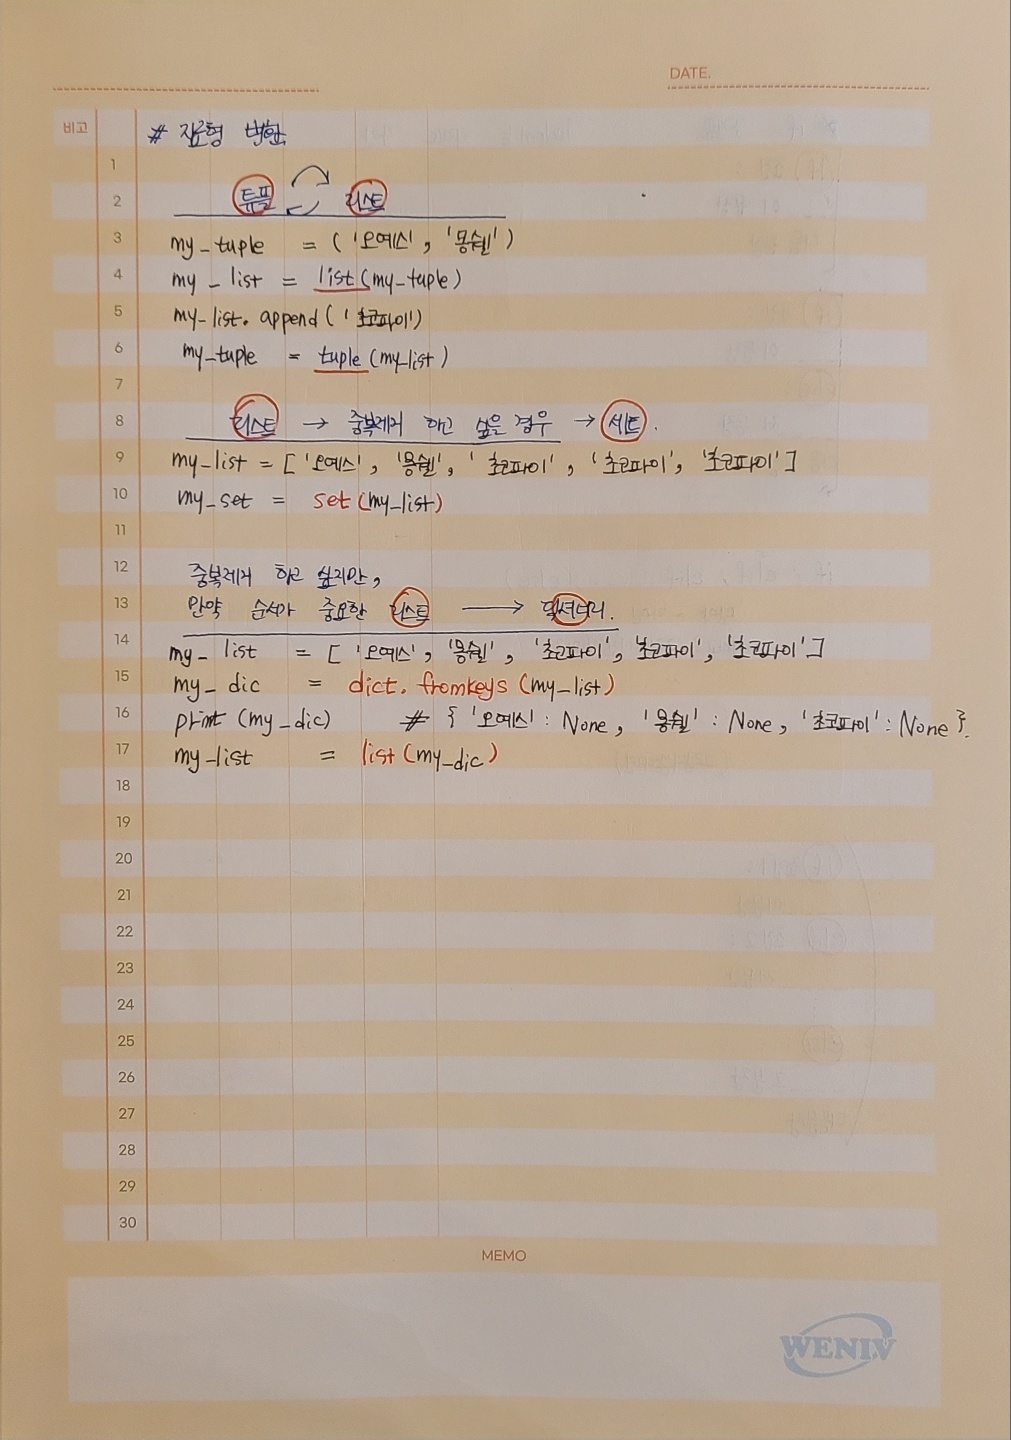 DATE.
비고 # 자료형 변환
1
2 튜플 리스트
3 my_tuple = ('오예스', '몽쉘')
4 my_list = list(my_tuple)
5 my_list.append('초코파이')
6 my_tuple = tuple(my_list)
7
8 리스트 → 중복제거 하고 싶은 경우 → 세트.
9 my_list = ['오예스', '몽쉘', '초코파이', '초코파이', '초코파이']
10 my_set = set(my_list)
11
12 중복제거 하고 싶지만,
13 만약 순서가 중요한 리스트 → 딕셔너리.
14 my_list = ['오예스', '몽쉘', '초코파이', '초코파이', '초코파이']
15 my_dic = dict.fromkeys(my_list)
16 print(my_dic) # {'오예스': None, '몽쉘': None, '초코파이': None}.
17 my_list = list(my_dic)
18
19
20
21
22
23
24
25
26
27
28
29
30
MEMO
WENIV